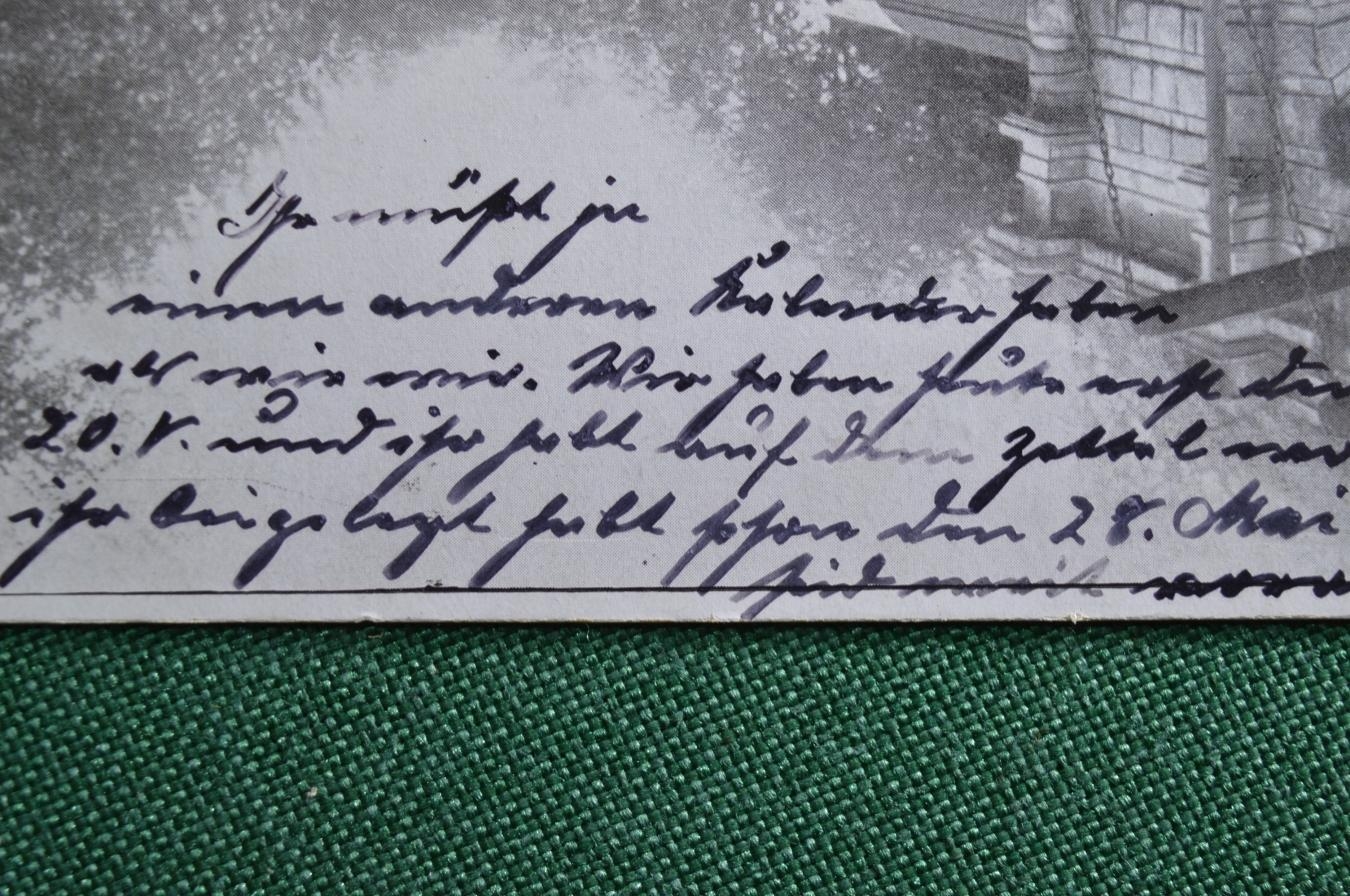 Ihr müßt ja
einen anderen Kalender haben
als wie wir. Wir haben heute erst den
20. V. und ihr habt auf dem Zettel
ihr beigelegt habt schon den 28. Mai
seid